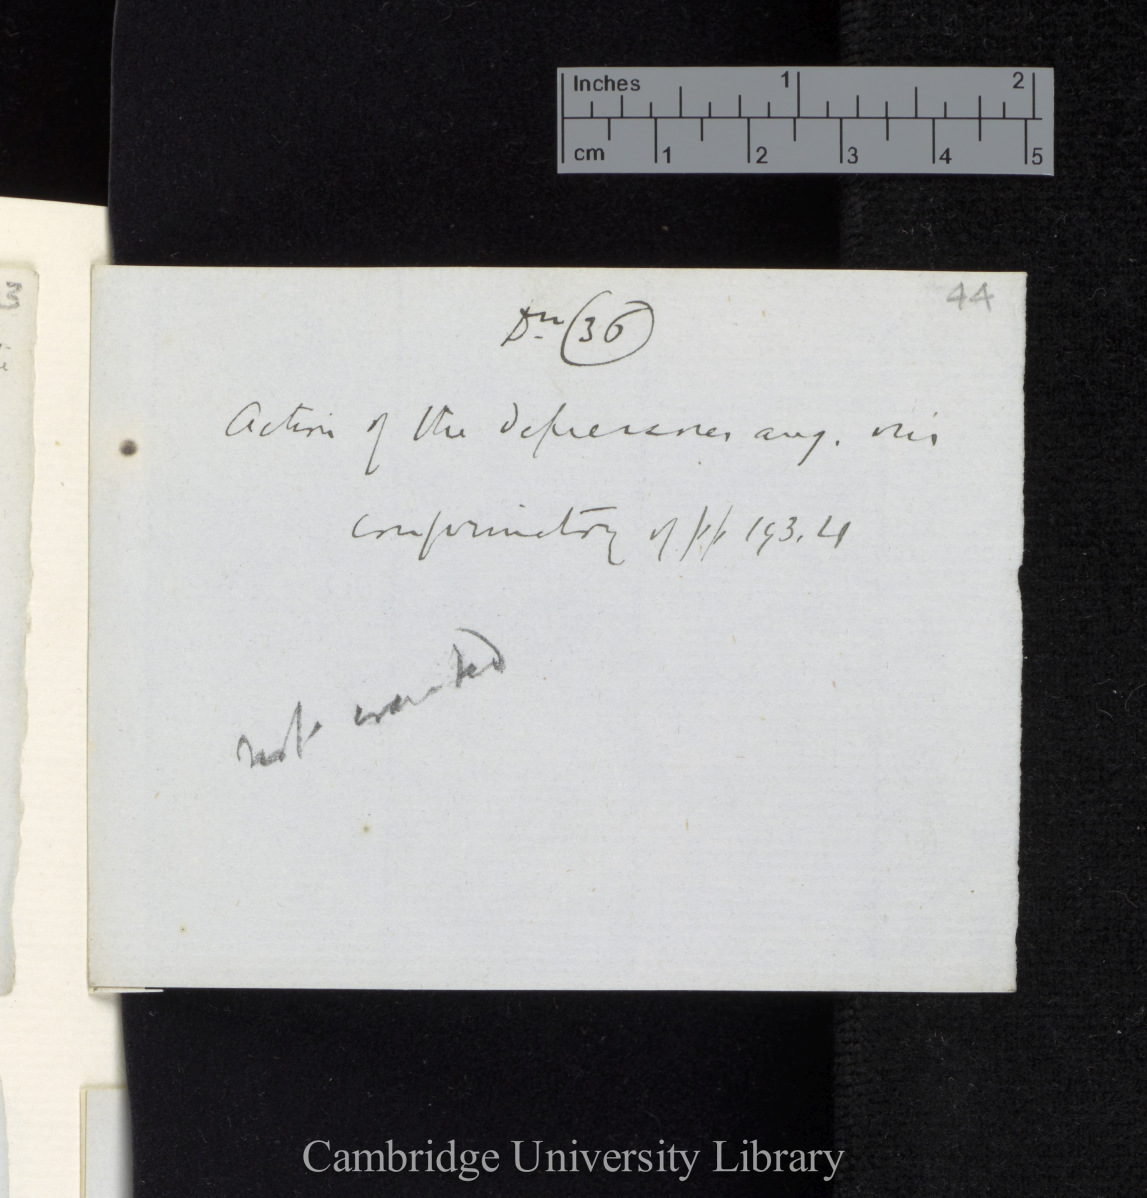 Inches 1 2
cm 1 2 3 4 5
3
44
Dn (36)
Action of the depressores ang. oris
confirmatory of pp 193.4
not wanted
Cambridge University Library